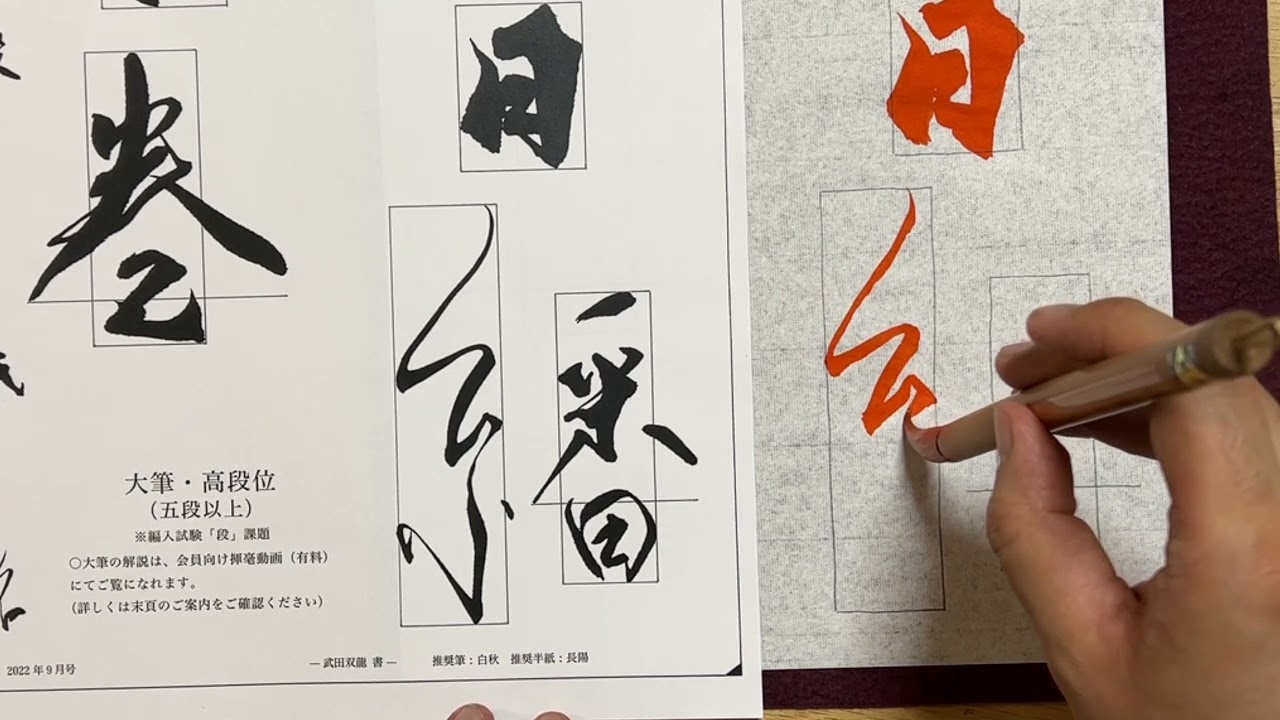 繙
巻
大筆・高段位
(五段以上)
※編入試験「段」課題
○大筆の解説は、会員向け揮毫動画(有料)
にてご覧になれます。
(詳しくは末頁のご案内をご確認ください)
2022年9月号
― 武田双龍 書 ―
推奨筆:白秋 推奨半紙:長陽